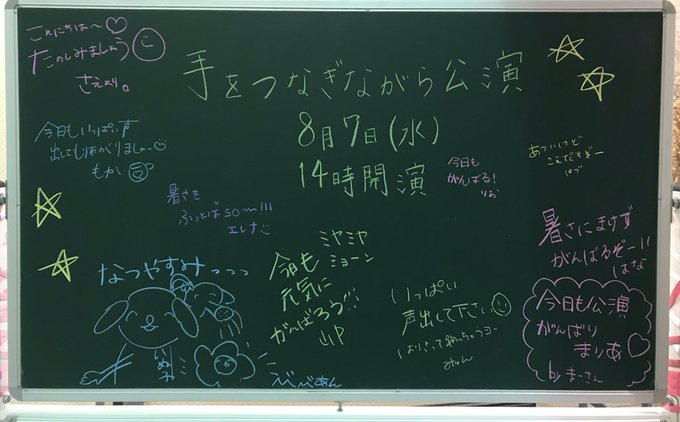 こんにちは〜♡
たのしみましょう
さえり。
手をつなぎながら公演
8月7日(水)
14時開演
今日もいっぱい声
出してもりあがりましょ〜
もか
今日も
がんばる!
りお
あついけど
こえだすぞー
暑さを
ふっとばそ〜!!!
エレナ
暑さにまけず
がんばるぞー!!
はな
なつやすみっっっ
いぬ
びびあん
ミヤミヤ
ミョーン
今日も
元気に
がんばろう
いっぱい
声出して下さい
みゅん
今日も公演
がんばり
まりあ♡
by まーさん